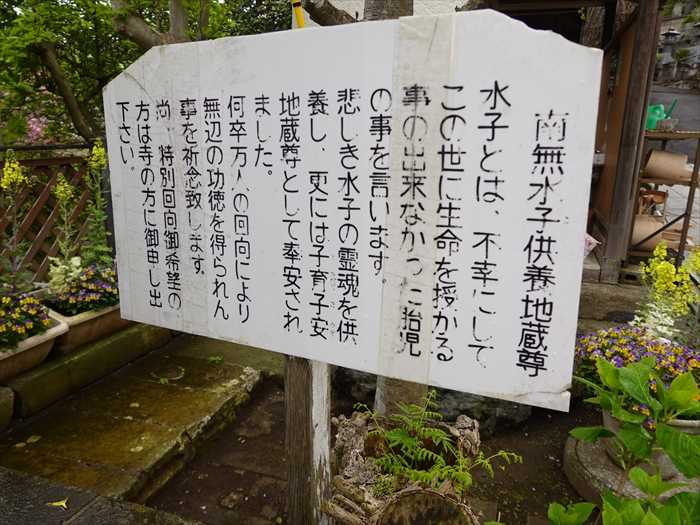 南無水子供養地蔵尊
水子とは、不幸にして
この世に生命を授かる
事の出来なかった胎児
の事を言います。
悲しき水子の霊魂を供
養し、更には子育子安
地蔵尊として奉安され
ました。
何卒万人の回向により
無辺の功徳を得られん
事を祈念致します。
尚、特別回向御希望の
方は寺の方に御申し出
下さい。